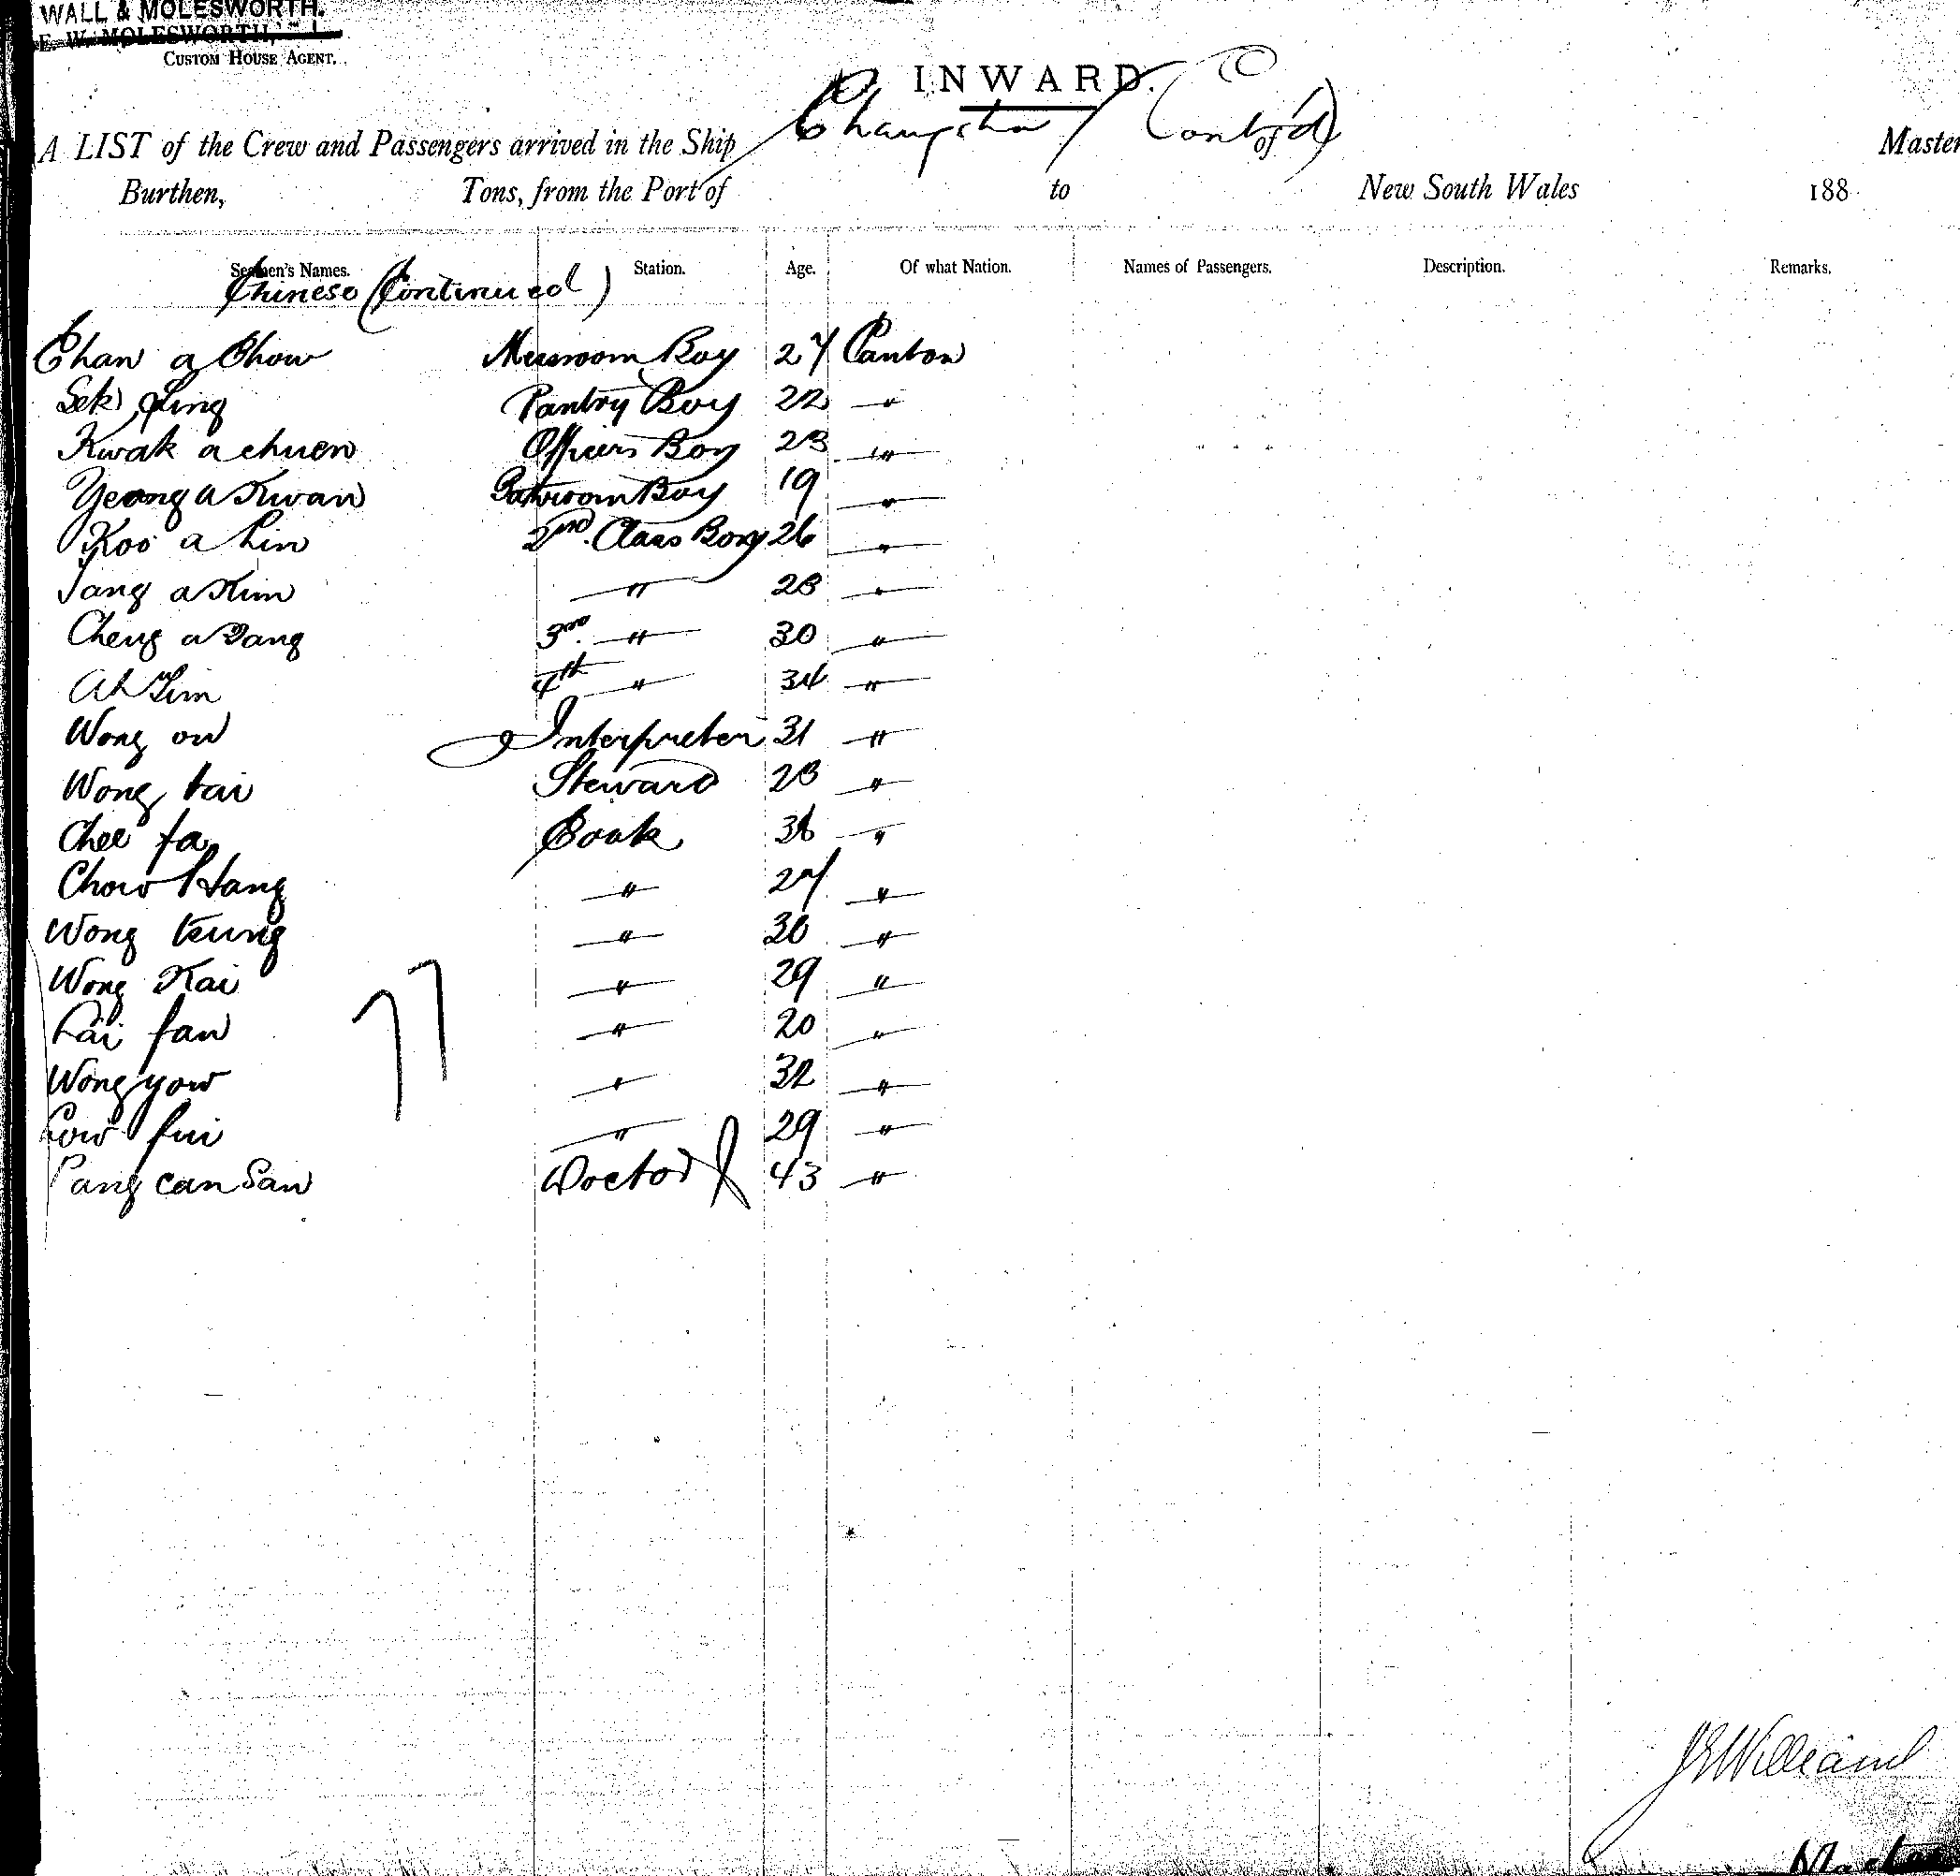 WALL & MOLESWORTH.
E. W. MOLESWORTH,
CUSTOM HOUSE AGENT.
INWARD.
A LIST of the Crew and Passengers arrived in the Ship Changsha (Contd) of Master
Burthen, Tons, from the Port of to New South Wales 188
Seamen's Names. Station. Age. Of what Nation. Names of Passengers. Description. Remarks.
Chinese (Continued)
Chan a Chow Messroom Boy 27 Canton
Sek Ying Pantry Boy 22 "
Kwak a chuen Officers Boy 23 "
Yeong a Kwan Boy 19 "
Koo a Lin 2nd Class Boy 26 "
Tang a Kim " 28 "
Cheng a Dang 3rd " 30 "
Ah Lim 4th " 34 "
Wong on Interpreter 31 "
Wong tai Steward 28 "
Chee fa Cook 36 "
Chow Hang " 27 "
Wong teung " 30 "
Wong Kai " 29 "
Lai fan " 20 "
Wong yow " 32 "
Low fui " 29 "
Pang can San Doctor 43 "
77